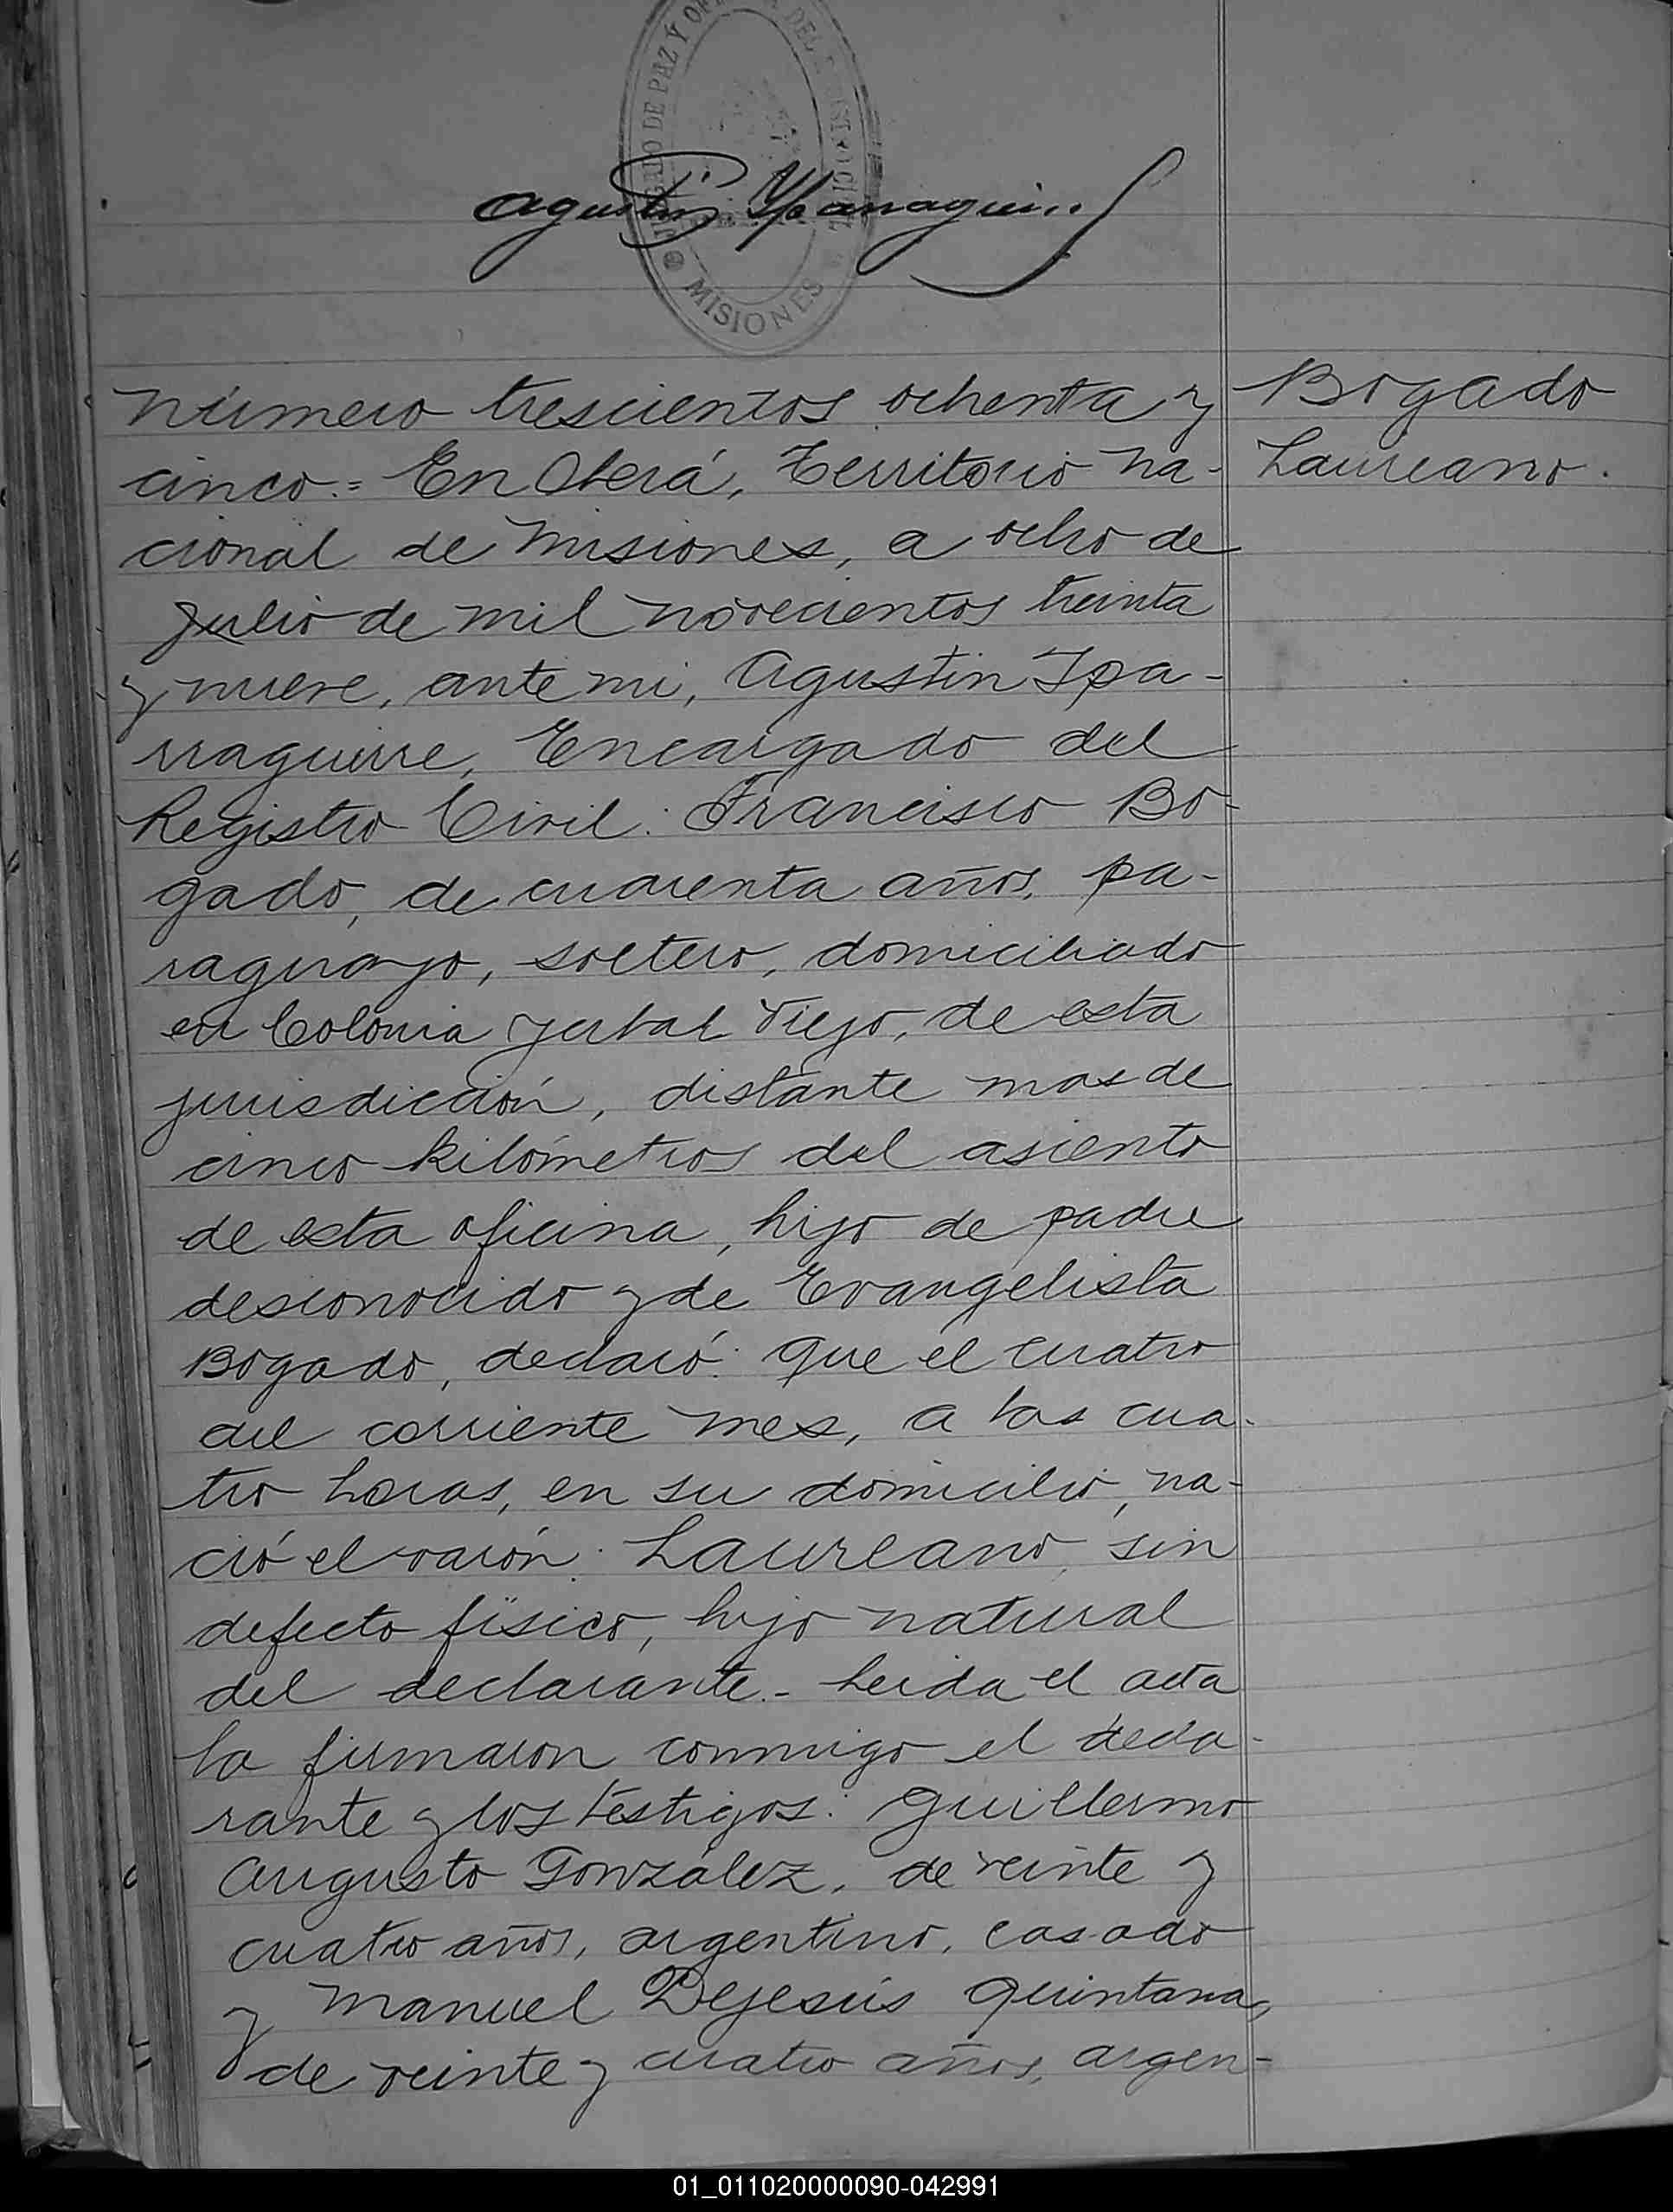 JUZGADO DE PAZ Y
MISIONES
Agustin Yparraguirre
Número trescientos ochenta y
Bogado
cinco.= En Oberá, Territorio Na-
Laureano.
cional de Misiones, a ocho de
Julio de mil novecientos treinta
y nueve, ante mi, Agustin Ipa-
rraguirre, Encargado del
Registro Civil: Francisco Bo-
gado, de cuarenta años, pa-
raguayo, soltero, domiciliado
en Colonia Yerbal Viejo, de esta
jurisdicción, distante mas de
cinco kilómetros del asiento
de esta oficina, hijo de padre
desconocido y de Evangelista
Bogado, declaró: Que el cuatro
del corriente mes, a las cua-
tro horas, en su domicilio, na-
ció el varón: Laureano, sin
defecto físico, hijo natural
del declarante.- Leida el acta
la firmaron conmigo el decla-
rante y los testigos: Guillermo
Augusto González, de veinte y
cuatro años, argentino, casado
y Manuel Dejesús Quintana,
de veinte y cuatro años, argen-
01_011020000090-042991